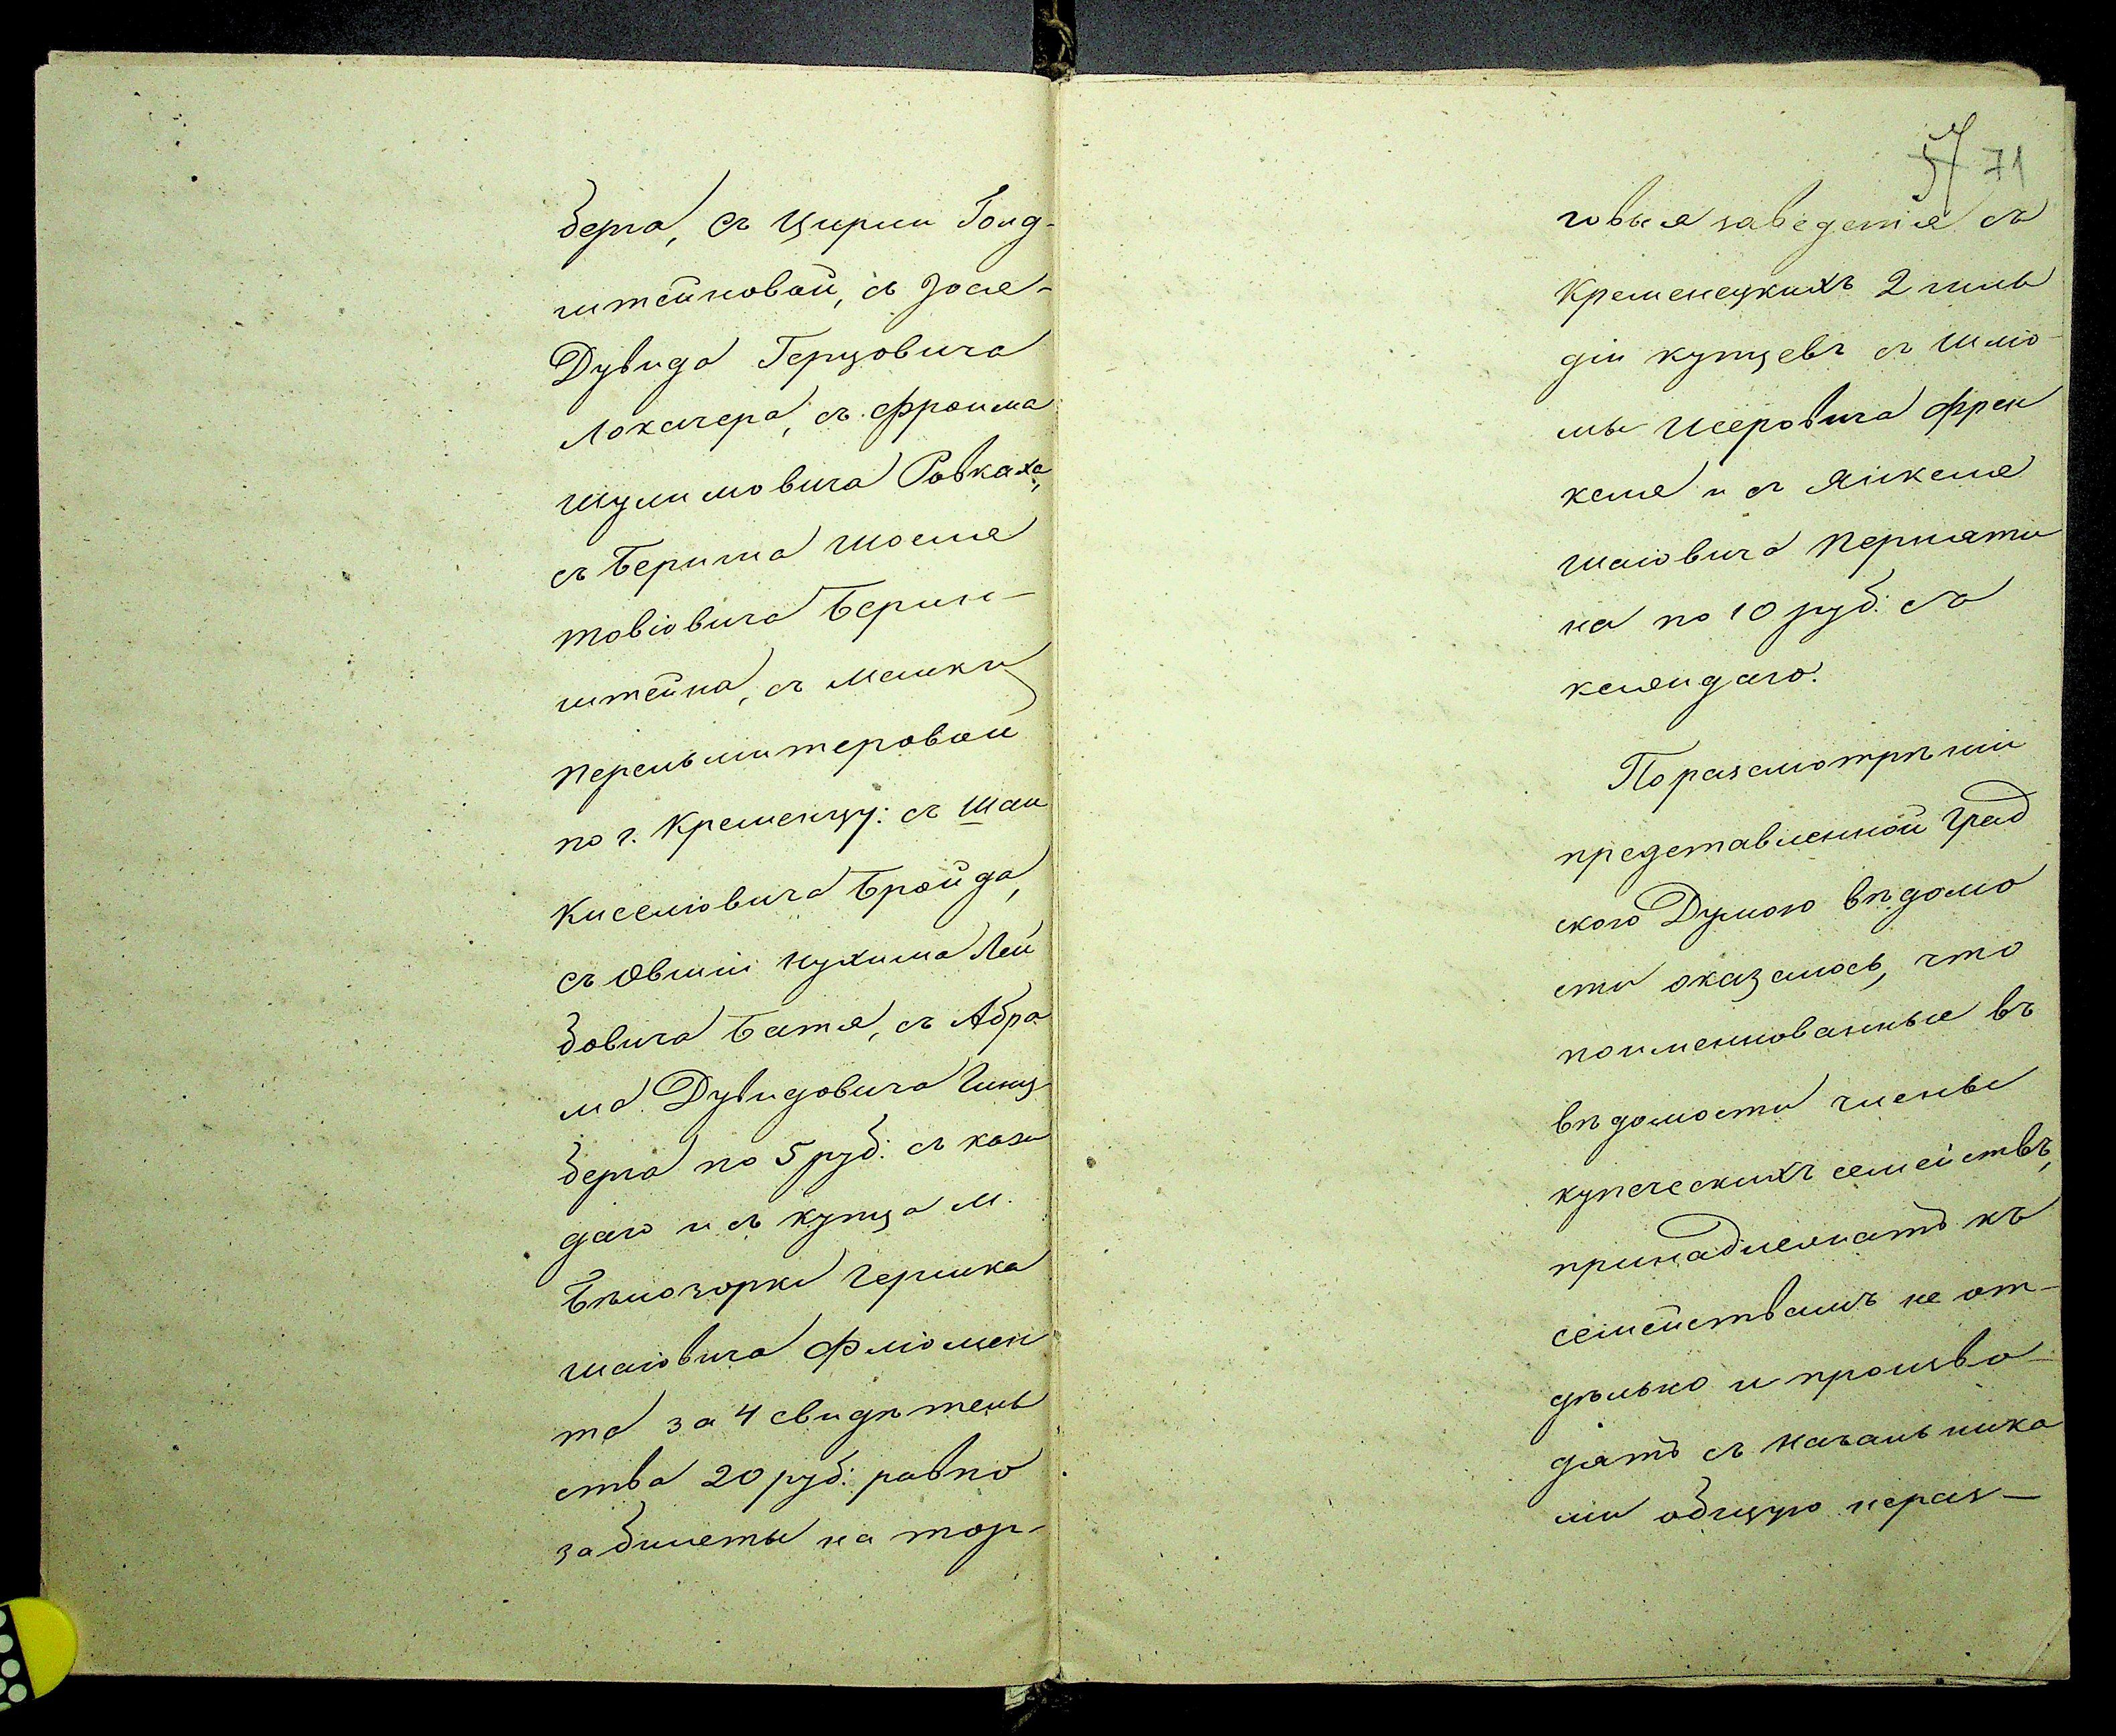 берга, съ Цирли Голд-
штейновой, съ Зося-
Дувида Герцовича
Локачера, съ Фроима
Шулимовича Ровкаха,
съ Бериша Шоеля
Товіовича Берин-
штейна, съ Малки
Перельмитеровой
по г. Кременцу: съ Шаи
Киселіовича Бройда,
съ Овшіи Нухима Лей
бовича Батя, съ Абра
ма Дувидовича Гинз
берга по 5 руб: съ каж
даго и съ купца м.
Бѣлозорки Гершка
Шаіовича Флюмен
та за 4 свидѣтель
ства 20 руб: равно
за билеты на тор-
57 71
говыя заведенія съ
Кременецкихъ 2 гиль
діи купцевъ съ Шліо-
мы Исеровича Френ
келя и съ Янкеля
Шаіовича Перляти
на по 10 руб: съ
каждаго.
По разсмотрѣніи
представленной Град
скою Думою вѣдомо
сти оказалось, что
поименнованные въ
вѣдомости члены
купеческихъ семействъ,
принадлежатъ къ
семействамъ не от-
дѣльно и произво-
дятъ съ начальника
ми общую нераз-